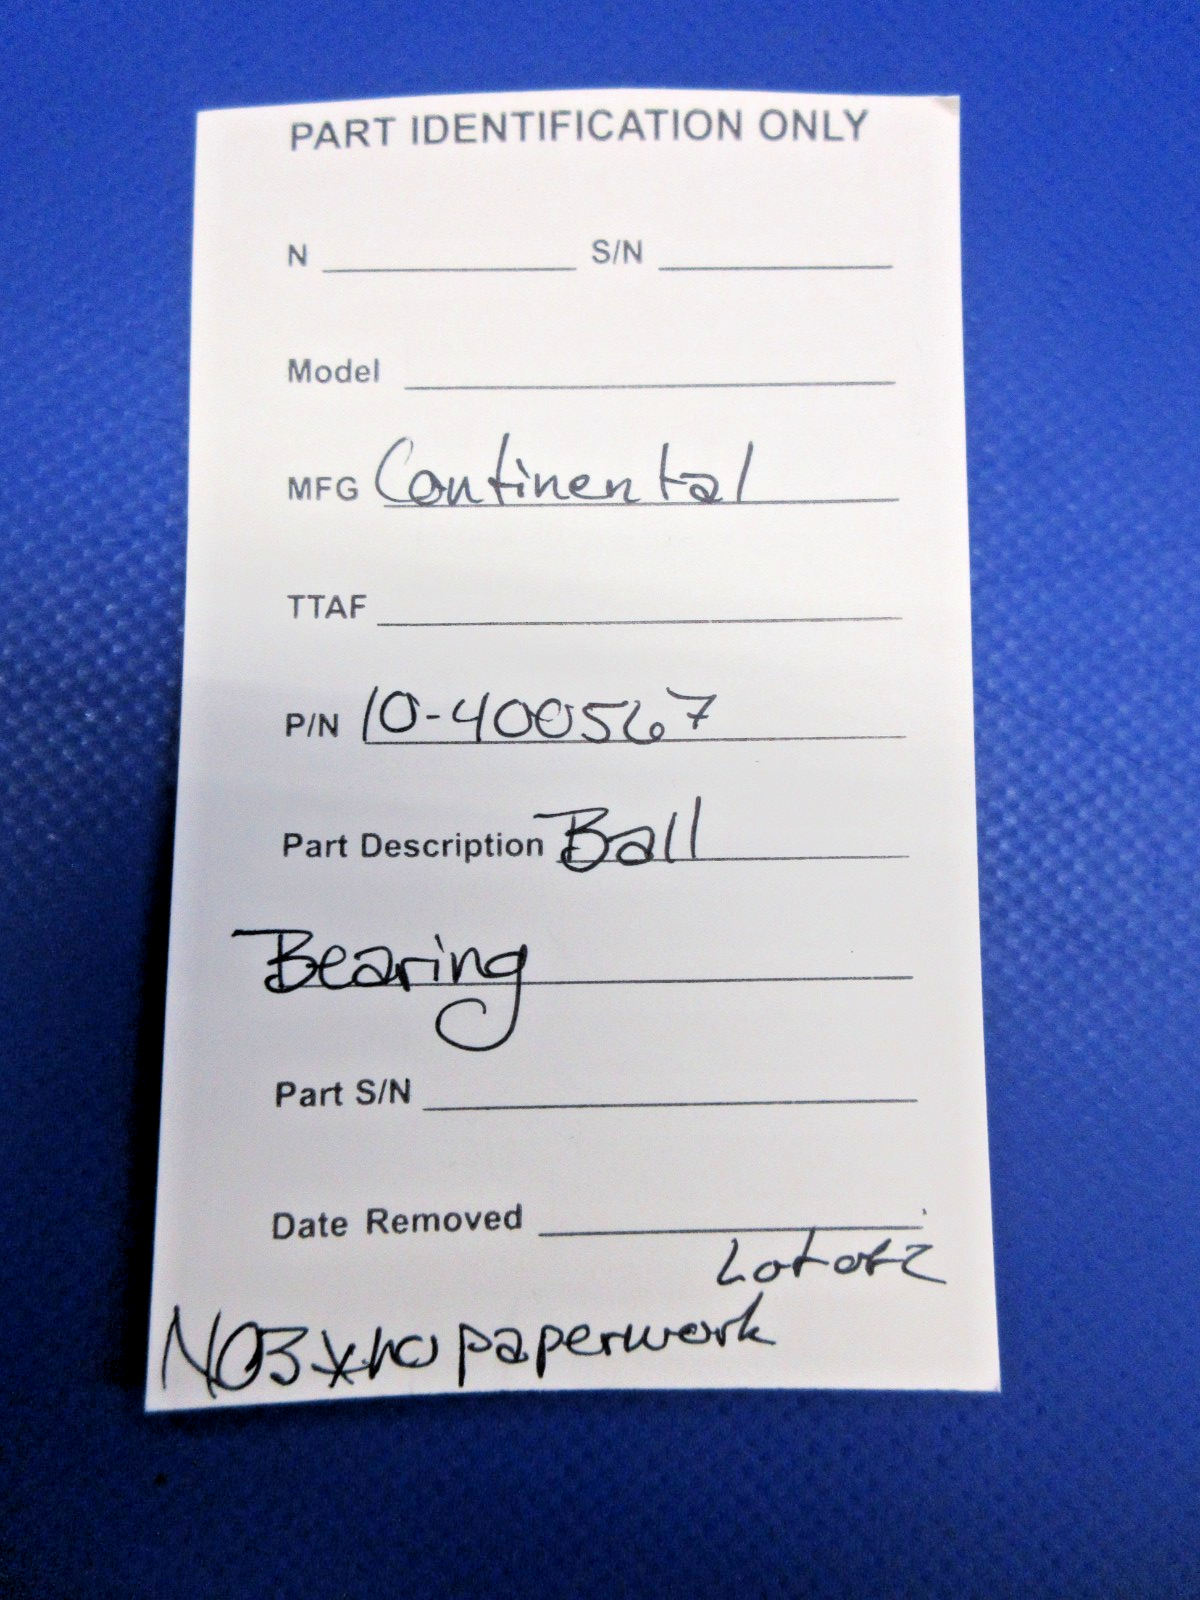 PART IDENTIFICATION ONLY
N S/N
Model
MFG Continental
TTAF
P/N 10-400567
Part Description Ball
Bearing
Part S/N
Date Removed
Lot of 2
NOS * no paperwork